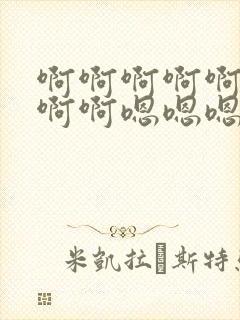 啊啊啊啊啊
啊啊嗯嗯嗯
米凱拉�斯特